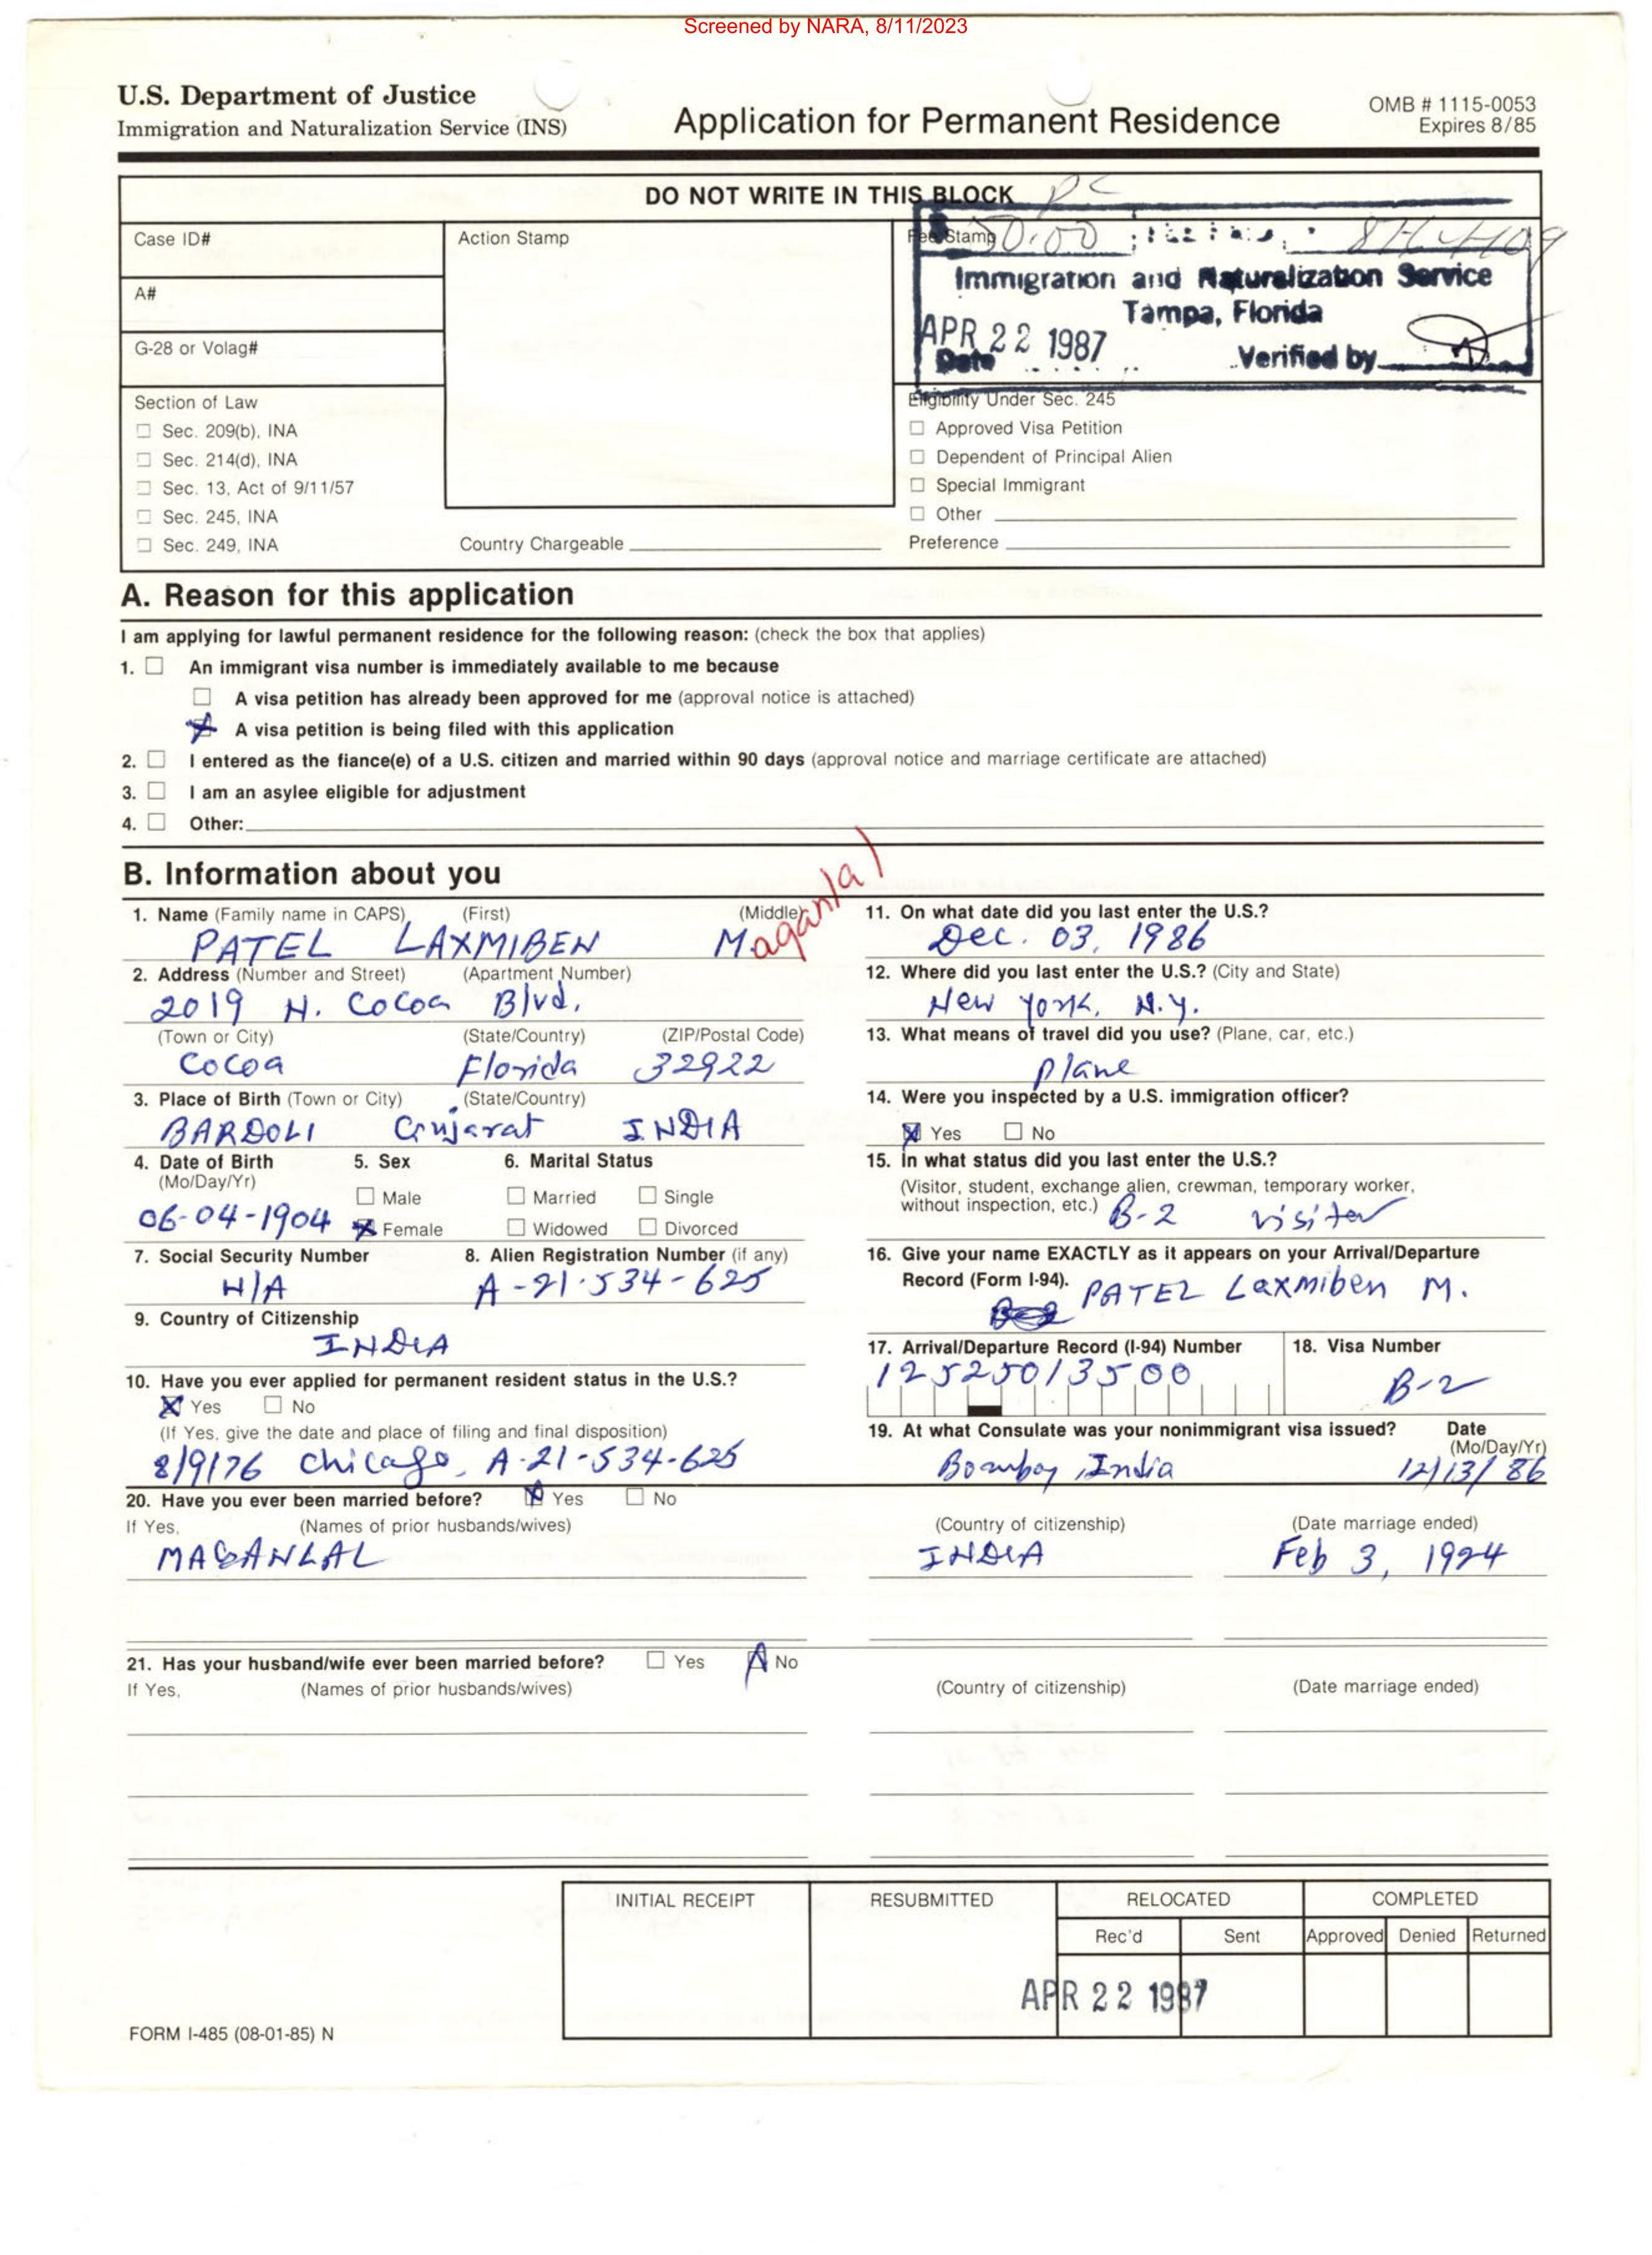 Screened by NARA, 8/11/2023
U.S. Department of Justice
Immigration and Naturalization Service (INS)
Application for Permanent Residence
OMB # 1115-0053
Expires 8/85
DO NOT WRITE IN THIS BLOCK
Case ID#
A#
G-28 or Volag#
Section of Law
Sec. 209(b), INA
Sec. 214(d), INA
Sec. 13, Act of 9/11/57
Sec. 245, INA
Sec. 249, INA
Action Stamp
Country Chargeable
Fee Stamp
Immigration and Naturalization Service
Tampa, Florida
APR 22 1987
Date Verified by
Eligibility Under Sec. 245
Approved Visa Petition
Dependent of Principal Alien
Special Immigrant
Other
Preference
A. Reason for this application
I am applying for lawful permanent residence for the following reason: (check the box that applies)
1. An immigrant visa number is immediately available to me because
A visa petition has already been approved for me (approval notice is attached)
A visa petition is being filed with this application
2. I entered as the fiance(e) of a U.S. citizen and married within 90 days (approval notice and marriage certificate are attached)
3. I am an asylee eligible for adjustment
4. Other:
B. Information about you
1. Name (Family name in CAPS) (First) (Middle)
PATEL LAXMIBEN Maganlal
2. Address (Number and Street) (Apartment Number)
2019 N. Cocoa Blvd.
(Town or City) (State/Country) (ZIP/Postal Code)
Cocoa Florida 32922
3. Place of Birth (Town or City) (State/Country)
BARDOLI Gujarat INDIA
4. Date of Birth 5. Sex 6. Marital Status
(Mo/Day/Yr)
Male Married Single
06-04-1904 Female Widowed Divorced
7. Social Security Number 8. Alien Registration Number (if any)
N/A A-21-534-625
9. Country of Citizenship
INDIA
10. Have you ever applied for permanent resident status in the U.S.?
Yes No
(If Yes, give the date and place of filing and final disposition)
8/9/76 Chicago, A-21-534-625
11. On what date did you last enter the U.S.?
Dec. 03, 1986
12. Where did you last enter the U.S.? (City and State)
New York, N.Y.
13. What means of travel did you use? (Plane, car, etc.)
Plane
14. Were you inspected by a U.S. immigration officer?
Yes No
15. In what status did you last enter the U.S.?
(Visitor, student, exchange alien, crewman, temporary worker,
without inspection, etc.) B-2 visitor
16. Give your name EXACTLY as it appears on your Arrival/Departure
Record (Form I-94). PATEL Laxmiben M.
17. Arrival/Departure Record (I-94) Number 18. Visa Number
12525013500 B-2
19. At what Consulate was your nonimmigrant visa issued? Date
(Mo/Day/Yr)
Bombay, India 12/13/86
20. Have you ever been married before? Yes No
If Yes, (Names of prior husbands/wives) (Country of citizenship) (Date marriage ended)
MAGANLAL INDIA Feb 3, 1924
21. Has your husband/wife ever been married before? Yes No
If Yes, (Names of prior husbands/wives) (Country of citizenship) (Date marriage ended)
INITIAL RECEIPT RESUBMITTED RELOCATED COMPLETED
Rec'd Sent Approved Denied Returned
APR 22 1987
FORM I-485 (08-01-85) N